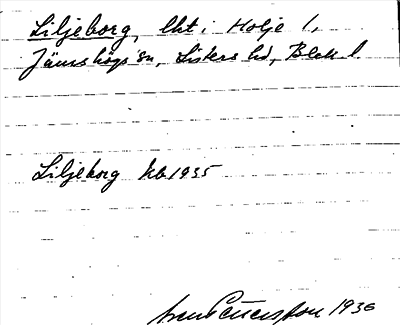 Liljeborg, lht i Holje 1,
Jämshögs sn, Listers hd, Blek l.
Liljeborg kb 1935
1936